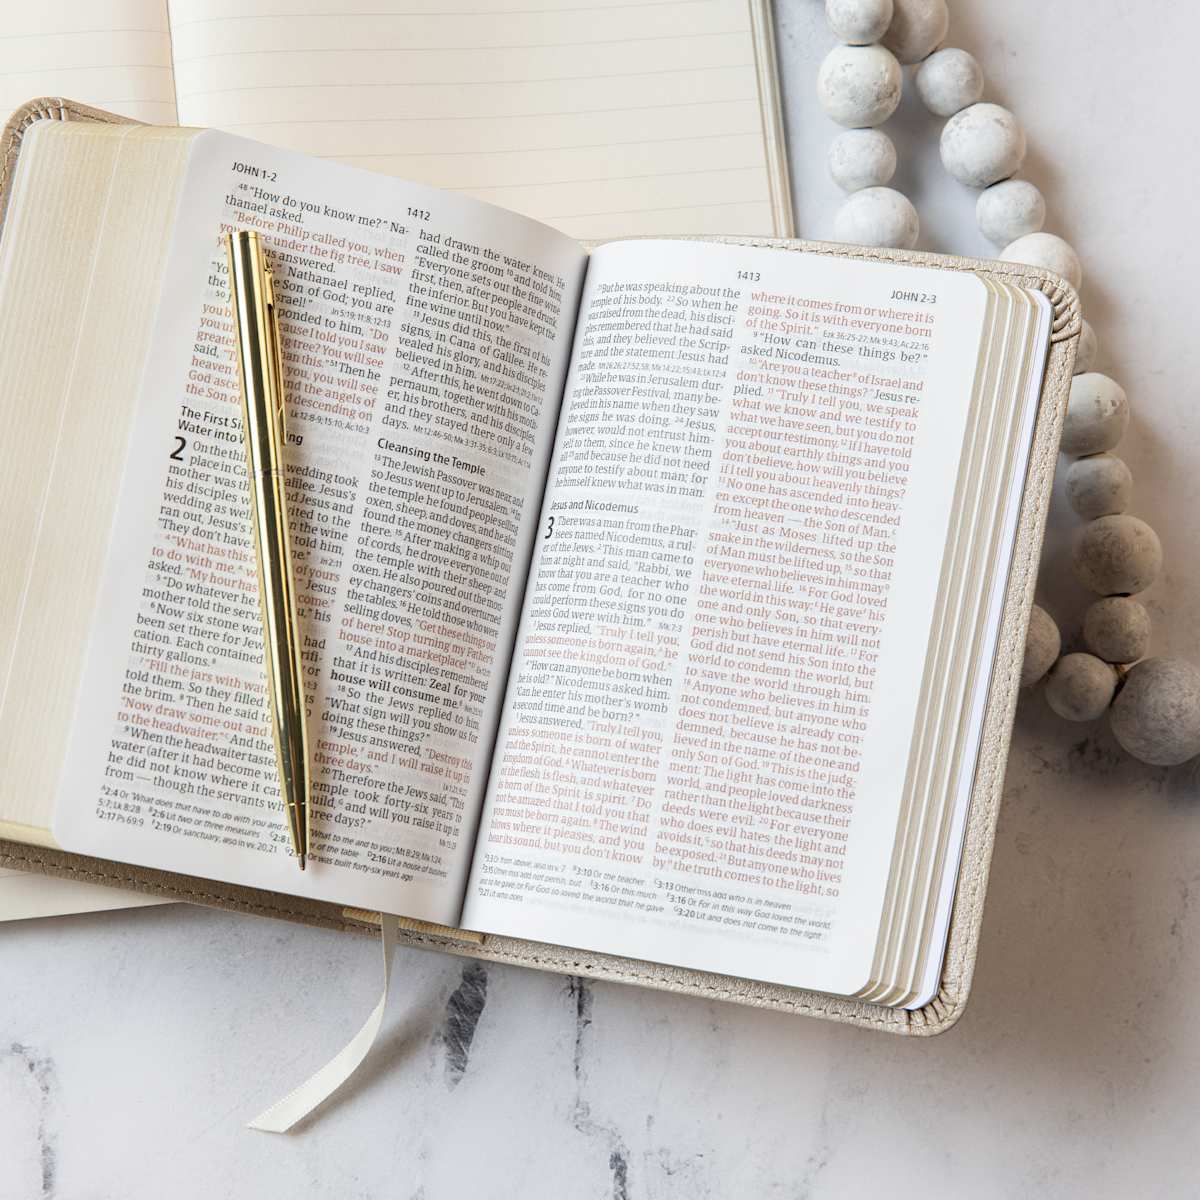 JOHN 1-2
1412
48 "How do you know me?" Na-
thanael asked.
"Before Philip called you, when
under the fig tree, I saw
answered.
Nathanael replied,
Son of God; you are
Jn 5:19; 11:8; 12:13
ponded to him, "Do
cause I told you I saw
fig tree? You will see
said, than this." 51 Then he
you, you will see
heaven and the angels of
God ascending and descending on
the Son of
Lk 12:8-9; 15:10; Ac 10:3
The First Sign
Water into
2 On the third wedding took
place in Cana Galilee. Jesus's
mother was there
his disciples invited to the
wedding as well. the wine
ran out, Jesus's told him,
"They don't have
Jn 2:11
4 "What has this of yours
to do with me, Jesus
asked. "My hour has come."
5 "Do whatever he his
mother told the servants.
6 Now six stone water had
been set there for Jewish
cation. Each contained or
thirty gallons.
7 "Fill the jars with water,"
told them. So they filled
the brim. 8 Then he said to
"Now draw some out and
to the headwaiter." And the
9 When the headwaiter tasted
water (after it had become
he did not know where it came
from — though the servants who
had drawn the water knew. He
called the groom 10 and told him,
"Everyone sets out the fine wine
first, then, after people are drunk,
the inferior. But you have kept the
fine wine until now."
11 Jesus did this, the first of his
signs, in Cana of Galilee. He re-
vealed his glory, and his disciples
believed in him.
12 After this, he went down to Ca-
pernaum, together with his moth-
er, his brothers, and his disciples,
and they stayed there only a few
days. Mt 12:46-50; Mk 3:31-35; 6:3; Lk
Cleansing the Temple
13 The Jewish Passover was near, and
so Jesus went up to Jerusalem. 14 In
the temple he found people selling
oxen, sheep, and doves, and he also
found the money changers sitting
there. 15 After making a whip out
of cords, he drove everyone out of
the temple with their sheep and
oxen. He also poured out the mon-
ey changers' coins and overturned
the tables. 16 He told those who were
selling doves, "Get these things out
of here! Stop turning my Father's
house into a marketplace!"
17 And his disciples remembered
that it is written: Zeal for your
house will consume me.
18 So the Jews replied to him,
"What sign will you show us for
doing these things?"
19 Jesus answered, "Destroy this
temple, and I will raise it up in
three days."
20 Therefore the Jews said, "This
temple took forty-six years to
build, and will you raise it up in
three days?"
2:4 Or "What does that have to do with you and me
"What to me and to you; Mt 8:29; Mk 1:24;
5:7; Lk 8:28 2:6 Lit two or three measures 2:8 of the table 2:16 Lit a house of business
2:17 Ps 69:9 2:19 Or sanctuary, also in vv. 20,21 Or was built forty-six years ago
1413
JOHN 2-3
21 But he was speaking about the
temple of his body. 22 So when he
was raised from the dead, his disci-
ples remembered that he had said
this, and they believed the Scrip-
ture and the statement Jesus had
made. Mt 26:26; 27:52,58; Mk 14:22; 15:43; Lk 12:4
23 While he was in Jerusalem dur-
ing the Passover Festival, many be-
lieved in his name when they saw
the signs he was doing. 24 Jesus,
however, would not entrust him-
self to them, since he knew them
all 25 and because he did not need
anyone to testify about man; for
he himself knew what was in man.
Jesus and Nicodemus
3 There was a man from the Phar-
isees named Nicodemus, a rul-
er of the Jews. 2 This man came to
him at night and said, "Rabbi, we
know that you are a teacher who
has come from God, for no one
could perform these signs you do
unless God were with him."
3 Jesus replied, "Truly I tell you,
unless someone is born again, he
cannot see the kingdom of God."
4 "How can anyone be born when
he is old?" Nicodemus asked him.
"Can he enter his mother's womb
a second time and be born?"
5 Jesus answered, "Truly I tell you,
unless someone is born of water
and the Spirit, he cannot enter the
kingdom of God. 6 Whatever is born
of the flesh is flesh, and whatever
is born of the Spirit is spirit. 7 Do
not be amazed that I told you that
you must be born again. 8 The wind
blows where it pleases, and you
hear its sound, but you don't know
where it comes from or where it is
going. So it is with everyone born
of the Spirit." Ezk 36:25-27; Mk 9:43; Ac 22:16
9 "How can these things be?"
asked Nicodemus.
10 "Are you a teacher of Israel and
don't know these things?" Jesus re-
plied. 11 "Truly I tell you, we speak
what we know and we testify to
what we have seen, but you do not
accept our testimony. 12 If I have told
you about earthly things and you
don't believe, how will you believe
if I tell you about heavenly things?
13 No one has ascended into heav-
en except the one who descended
from heaven — the Son of Man.
14 "Just as Moses lifted up the
snake in the wilderness, so the Son
of Man must be lifted up, 15 so that
everyone who believes in him may
have eternal life. 16 For God loved
the world in this way: He gave his
one and only Son, so that every-
one who believes in him will not
perish but have eternal life. 17 For
God did not send his Son into the
world to condemn the world, but
to save the world through him.
18 Anyone who believes in him is
not condemned, but anyone who
does not believe is already con-
demned, because he has not be-
lieved in the name of the one and
only Son of God. 19 This is the judg-
ment: The light has come into the
world, and people loved darkness
rather than the light because their
deeds were evil. 20 For everyone
who does evil hates the light and
avoids it, so that his deeds may not
be exposed. 21 But anyone who lives
by the truth comes to the light, so
3:3 Or from above, also in v. 7 3:10 Or the teacher 3:13 Other mss add who is in heaven
3:15 Other mss add not perish, but 3:16 Or this much 3:16 Or For in this way God loved the world,
and so he gave, or For God so loved the world that he gave 3:20 Lit and does not come to the light
3:21 Lit who does